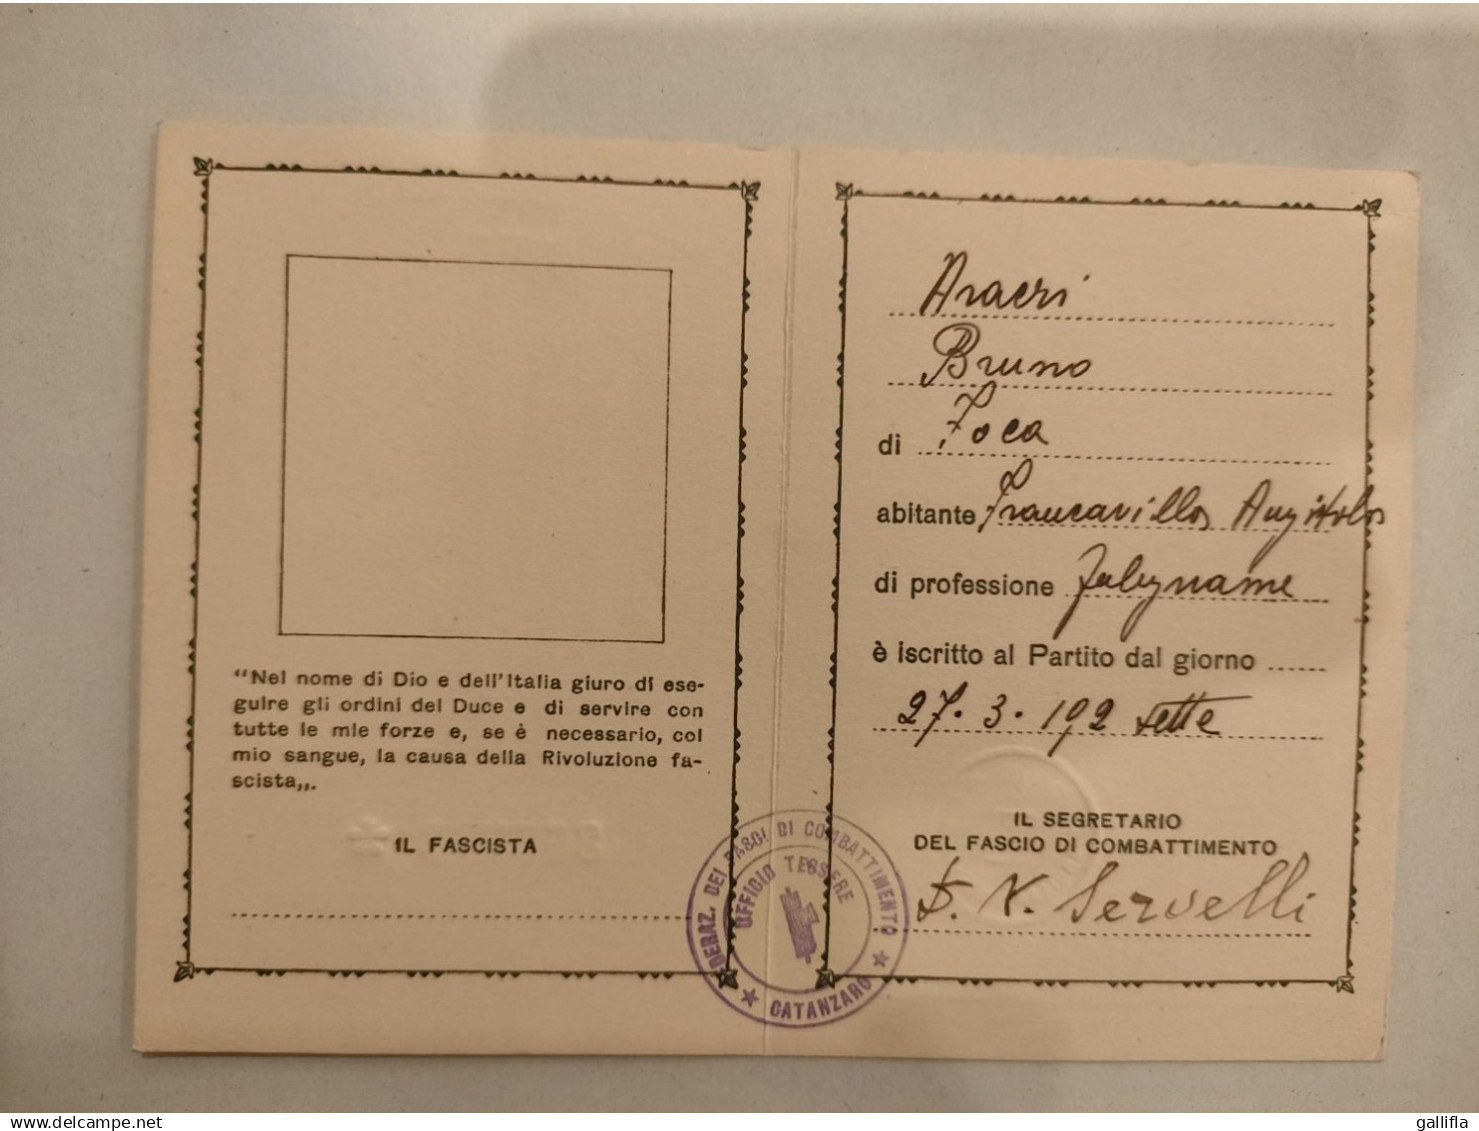 “Nel nome di Dio e dell'Italia giuro di ese-
guire gli ordini del Duce e di servire con
tutte le mie forze e, se è necessario, col
mio sangue, la causa della Rivoluzione fa-
scista„.
IL FASCISTA
Aracri
Bruno
di Foca
abitante Francavilla Angitola
di professione Falegname
è iscritto al Partito dal giorno
27.3.192 sette
IL SEGRETARIO
DEL FASCIO DI COMBATTIMENTO
Servelli
FEDERAZ. DEI FASCI DI COMBATTIMENTO
UFFICIO TESSERE
★ CATANZARO ★
www.delcampe.net
gallifla